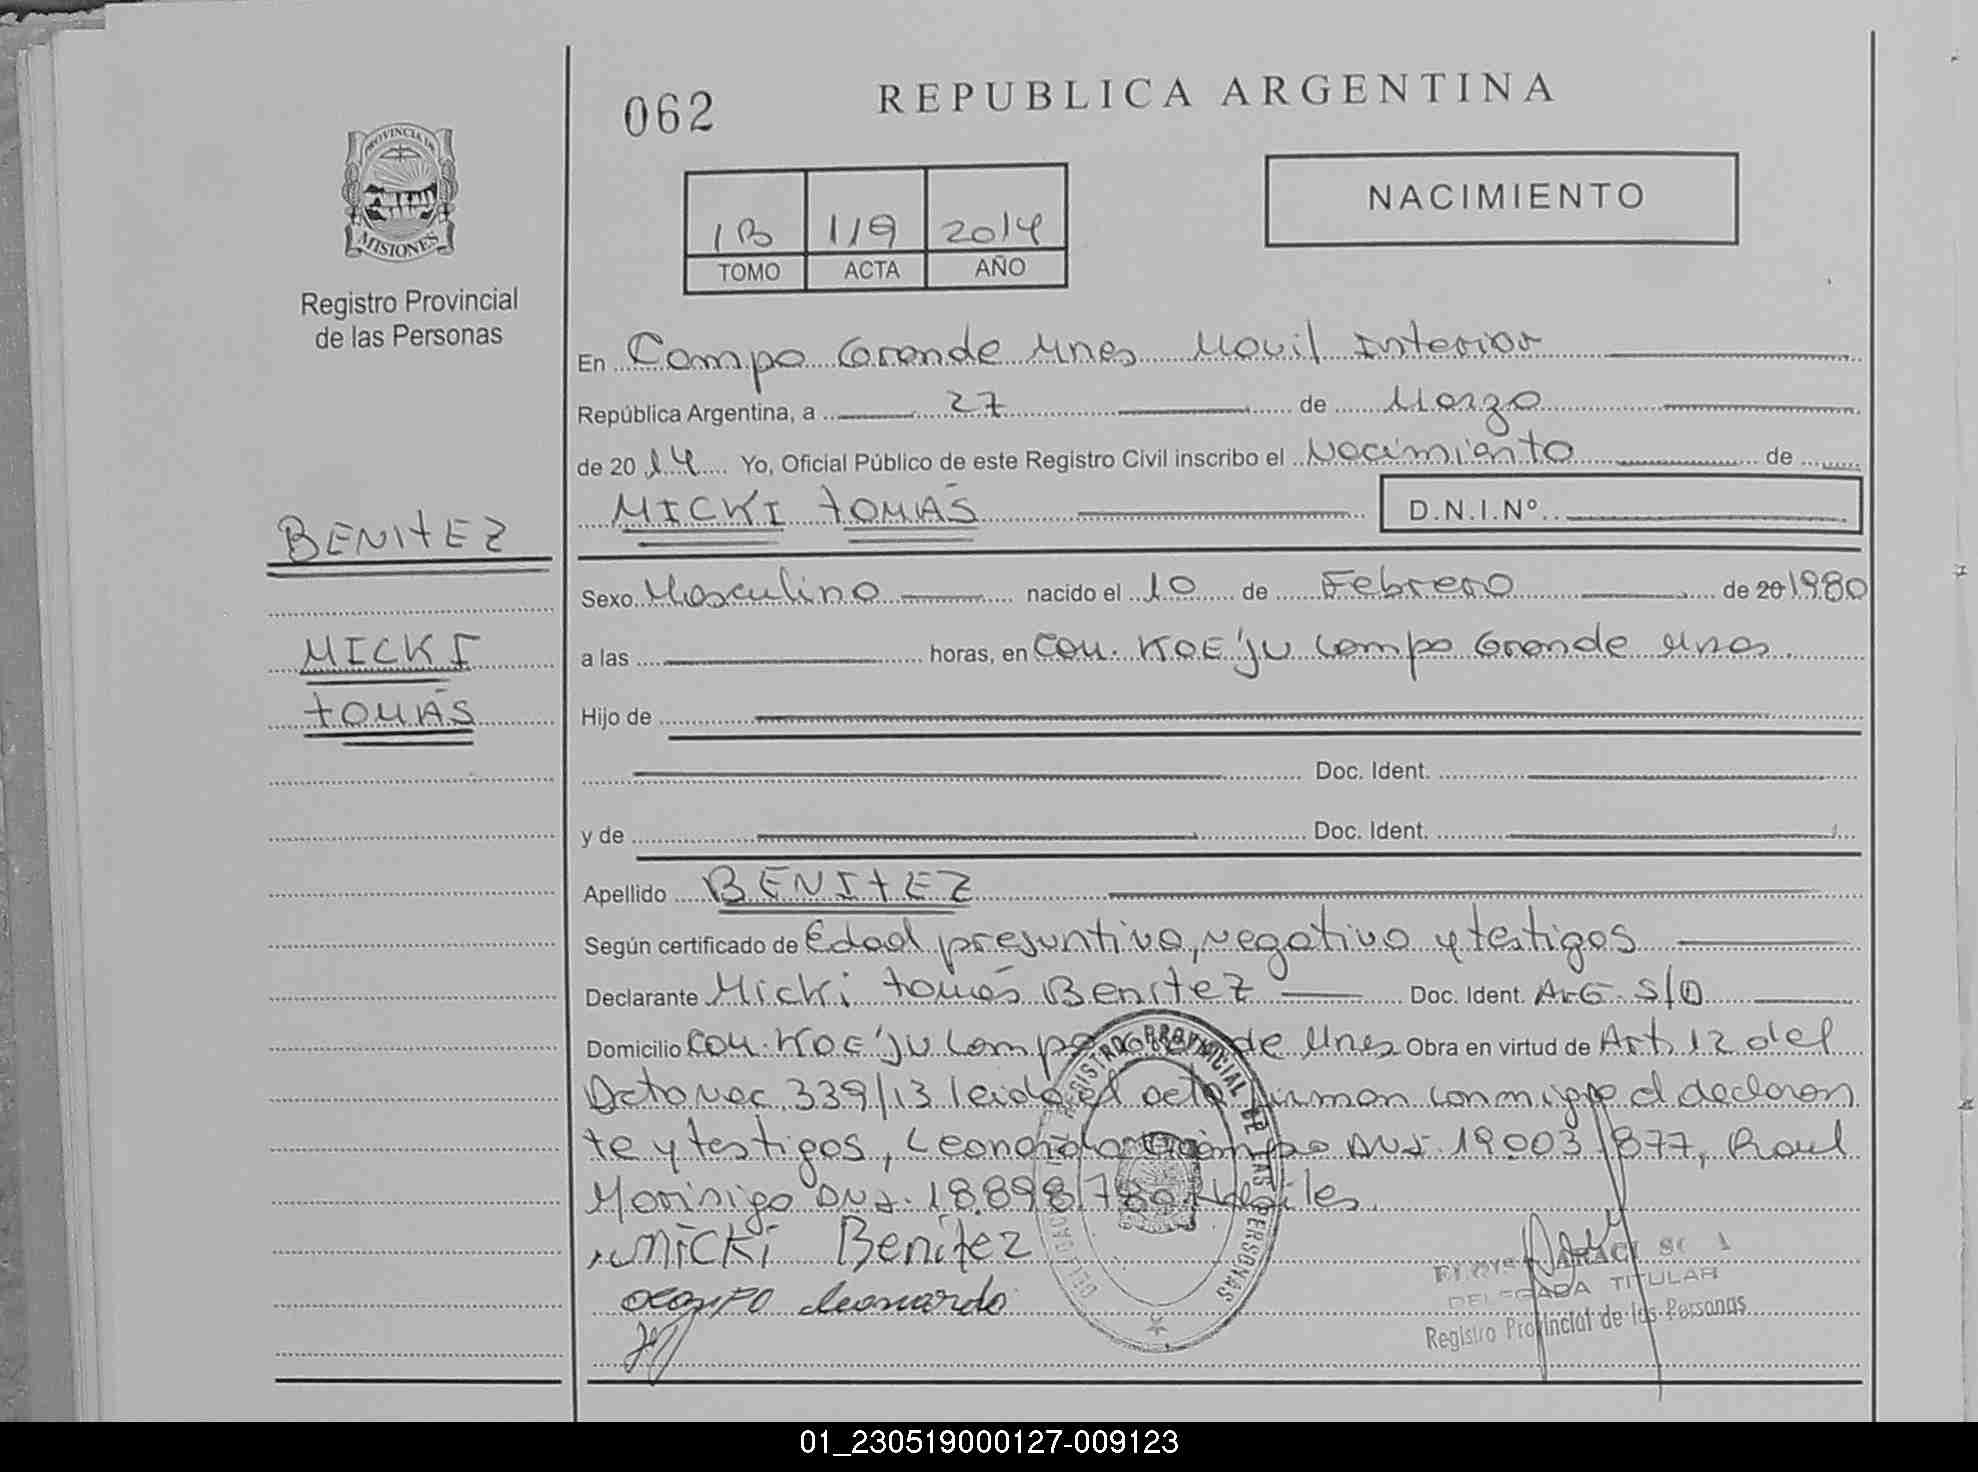 062
REPUBLICA ARGENTINA
PROVINCIA DE
MISIONES
Registro Provincial
de las Personas
1B 119 2014
TOMO ACTA AÑO
NACIMIENTO
En Campo Grande Mnes Movil Interior
República Argentina, a 27 de Marzo
de 2014 Yo, Oficial Público de este Registro Civil inscribo el Nacimiento de
MICKI TOMÁS D.N.I.Nº
BENITEZ
MICKI
TOMÁS
Sexo Masculino nacido el 10 de Febrero de 20 1980
a las horas, en Com. KOE'JU Campo Grande Mnes.
Hijo de
Doc. Ident.
y de Doc. Ident.
Apellido BENITEZ
Según certificado de Edad presuntiva, negativo y testigos
Declarante Micki Tomás Benitez Doc. Ident. ArG. S/D
Domicilio Com. KOE'JU Campo de Mnes Obra en virtud de Art. 12 del
Dcto Nac. 339/13 leida el acta firman conmigo el declaran
te y testigos, Leonardo DNI. 19.003.877, Raul
Morinigo DNI. 18.898.780 Habiles.
Micki Benitez
ocampo leonardo
REGISTRO PROVINCIAL DE LAS PERSONAS
DELEGADA TITULAR
Registro Provincial de las Personas
01_230519000127-009123